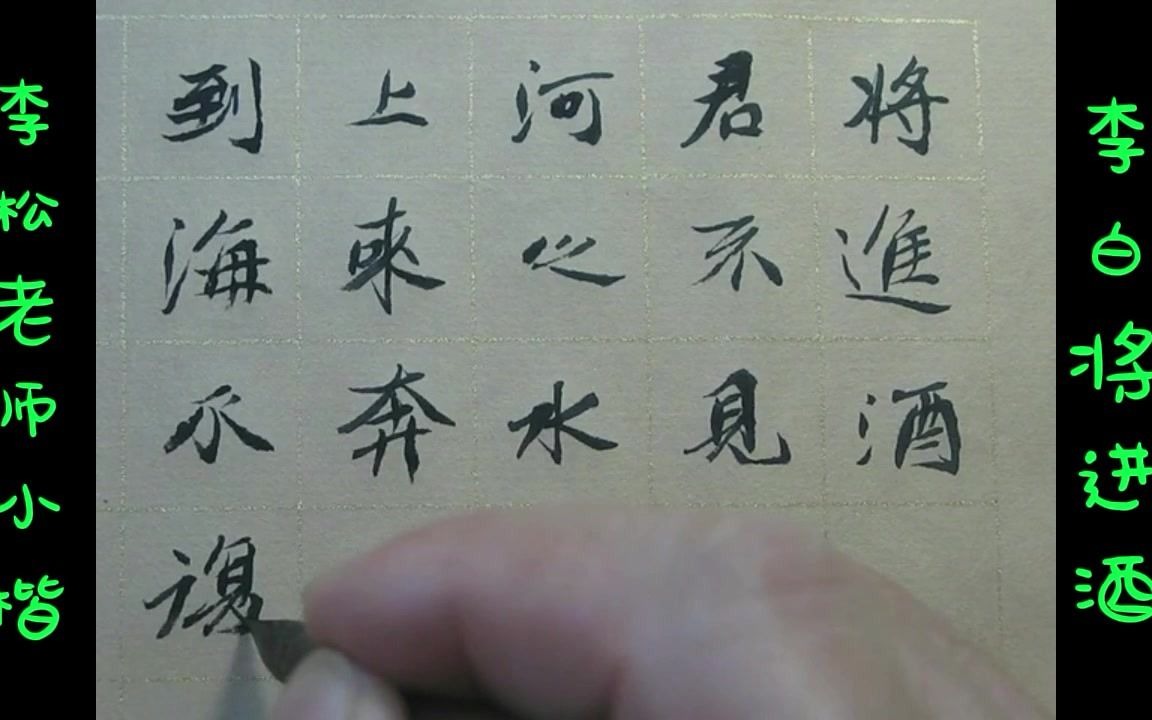 李白将进酒
将進酒
君不見
河之水
上來奔
到海不復
李松老师小楷